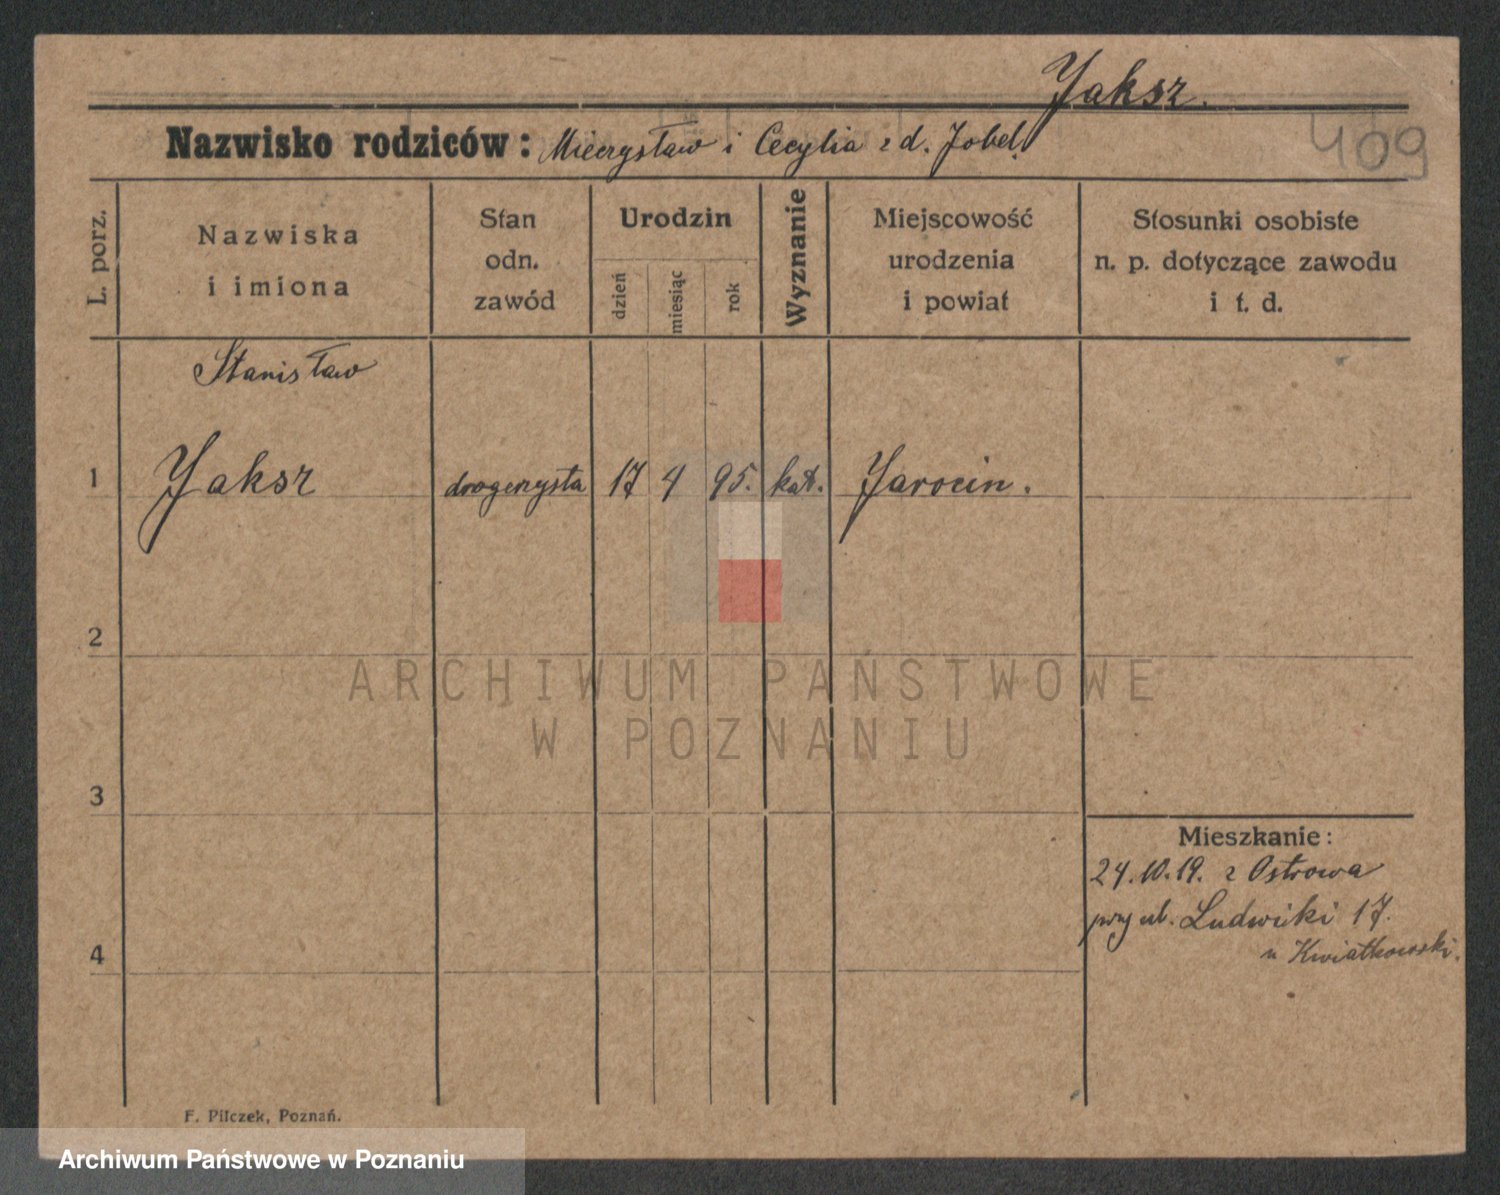 Jaksz.
Nazwisko rodziców: Mieczysław i Cecylia z d. Jobel.
409
L. porz.
Nazwiska
i imiona
Stan
odn.
zawód
Urodzin
dzień
miesiąc
rok
Wyznanie
Miejscowość
urodzenia
i powiat
Stosunki osobiste
n. p. dotyczące zawodu
i t. d.
Stanisław
1 Jaksz drogerzysta 17 4 95. kat. Jarocin.
2
ARCHIWUM PAŃSTWOWE
W POZNANIU
3
Mieszkanie:
24.10.19. z Ostrowa
przy ul. Ludwiki 17.
u Kwiatkowski.
4
F. Pilczek, Poznań.
Archiwum Państwowe w Poznaniu